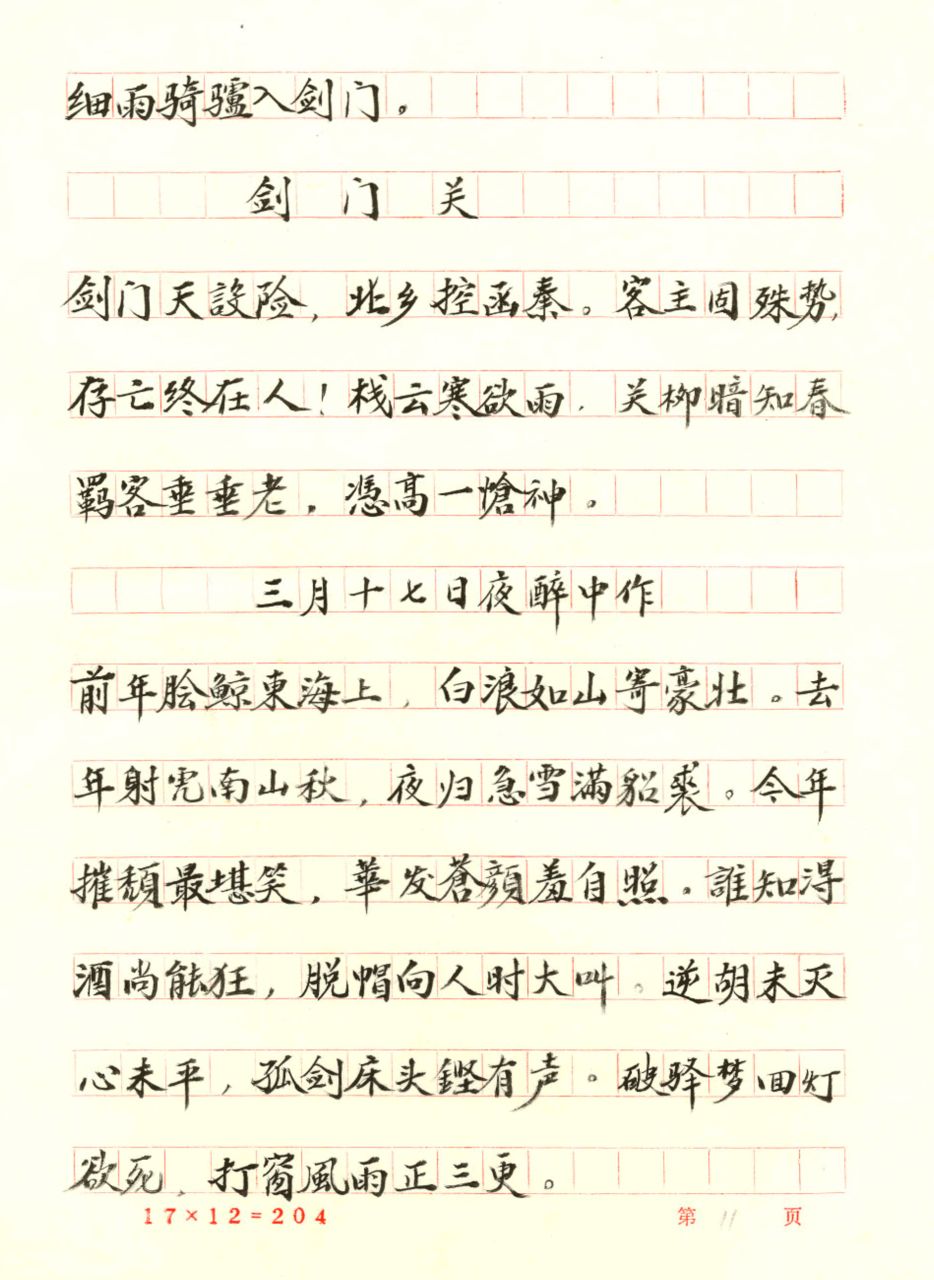 细雨骑驢入剑门。
剑门关
剑门天設险，北乡控函秦。客主固殊势，
存亡终在人！栈云寒欲雨，关柳暗知春
羁客垂垂老，憑高一愴神。
三月十七日夜醉中作
前年脍鲸東海上，白浪如山寄豪壮。去
年射虎南山秋，夜归急雪滿貂裘。今年
摧颓最堪笑，華发蒼顔羞自照。誰知得
酒尚能狂，脱帽向人时大叫。逆胡未灭
心未平，孤剑床头鏗有声。破驿梦回灯
欲死，打窗風雨正三更。
17×12=204 第 11 页